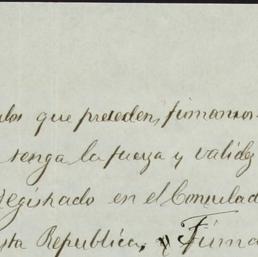 que preceden, firmamos
tenga la fuerza y validez
registrado en el Consulad
sta Republica, y Firma